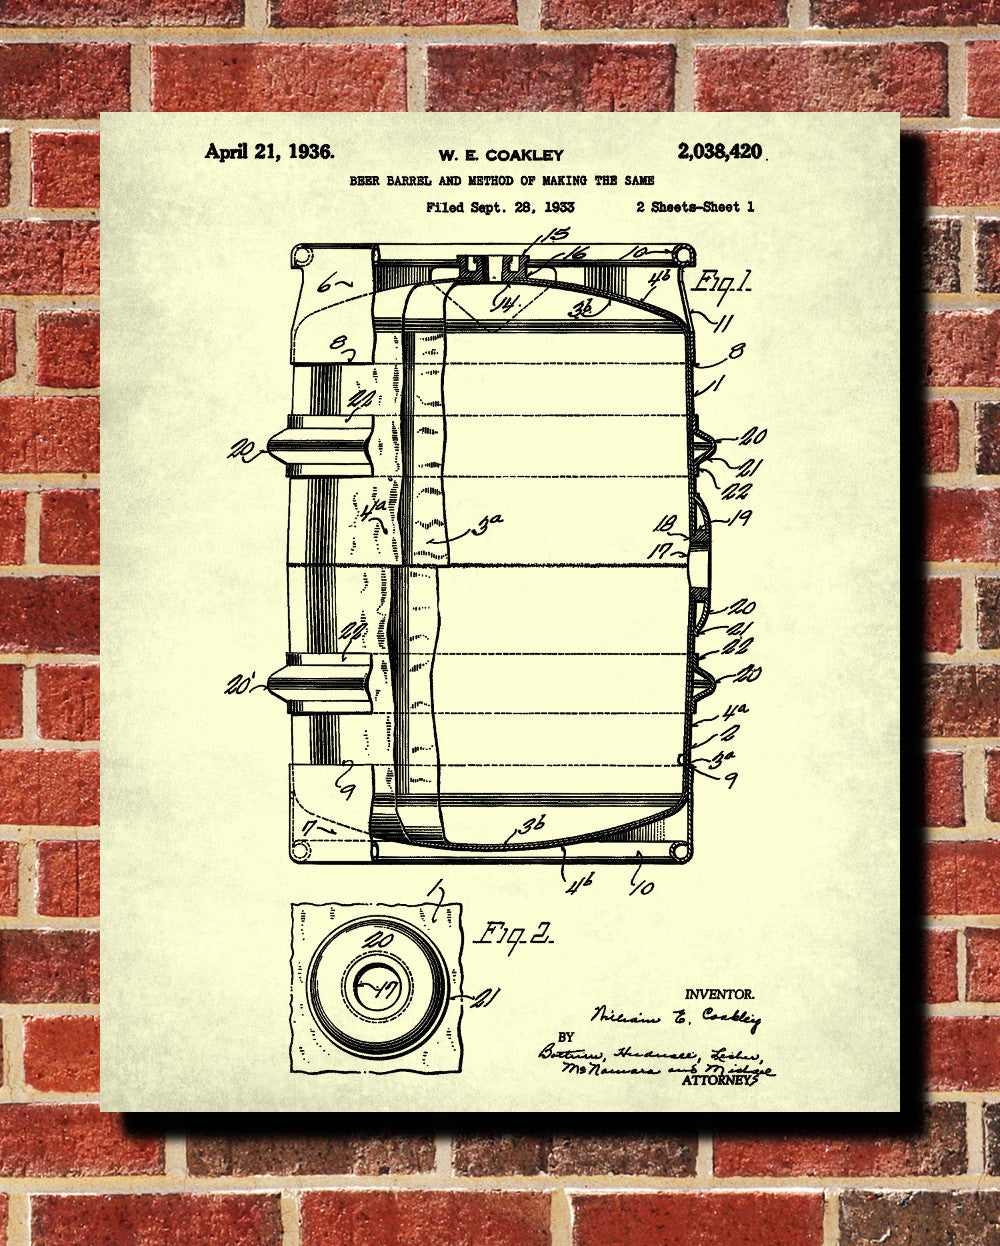 April 21, 1936.
W. E. COAKLEY
2,038,420
BEER BARREL AND METHOD OF MAKING THE SAME
Filed Sept. 28, 1933
2 Sheets-Sheet 1
15
16
10
6
14
3b
4b
Fig. 1.
11
8
8
1
22
20
20
21
22
4a
3a
19
18
17
20
21
22
22
20'
20
4a
2
3a
9
9
7
3b
4b
10
1
Fig. 2.
20
17
21
INVENTOR.
William E. Coakley
BY
McNamara and Michael
ATTORNEYS